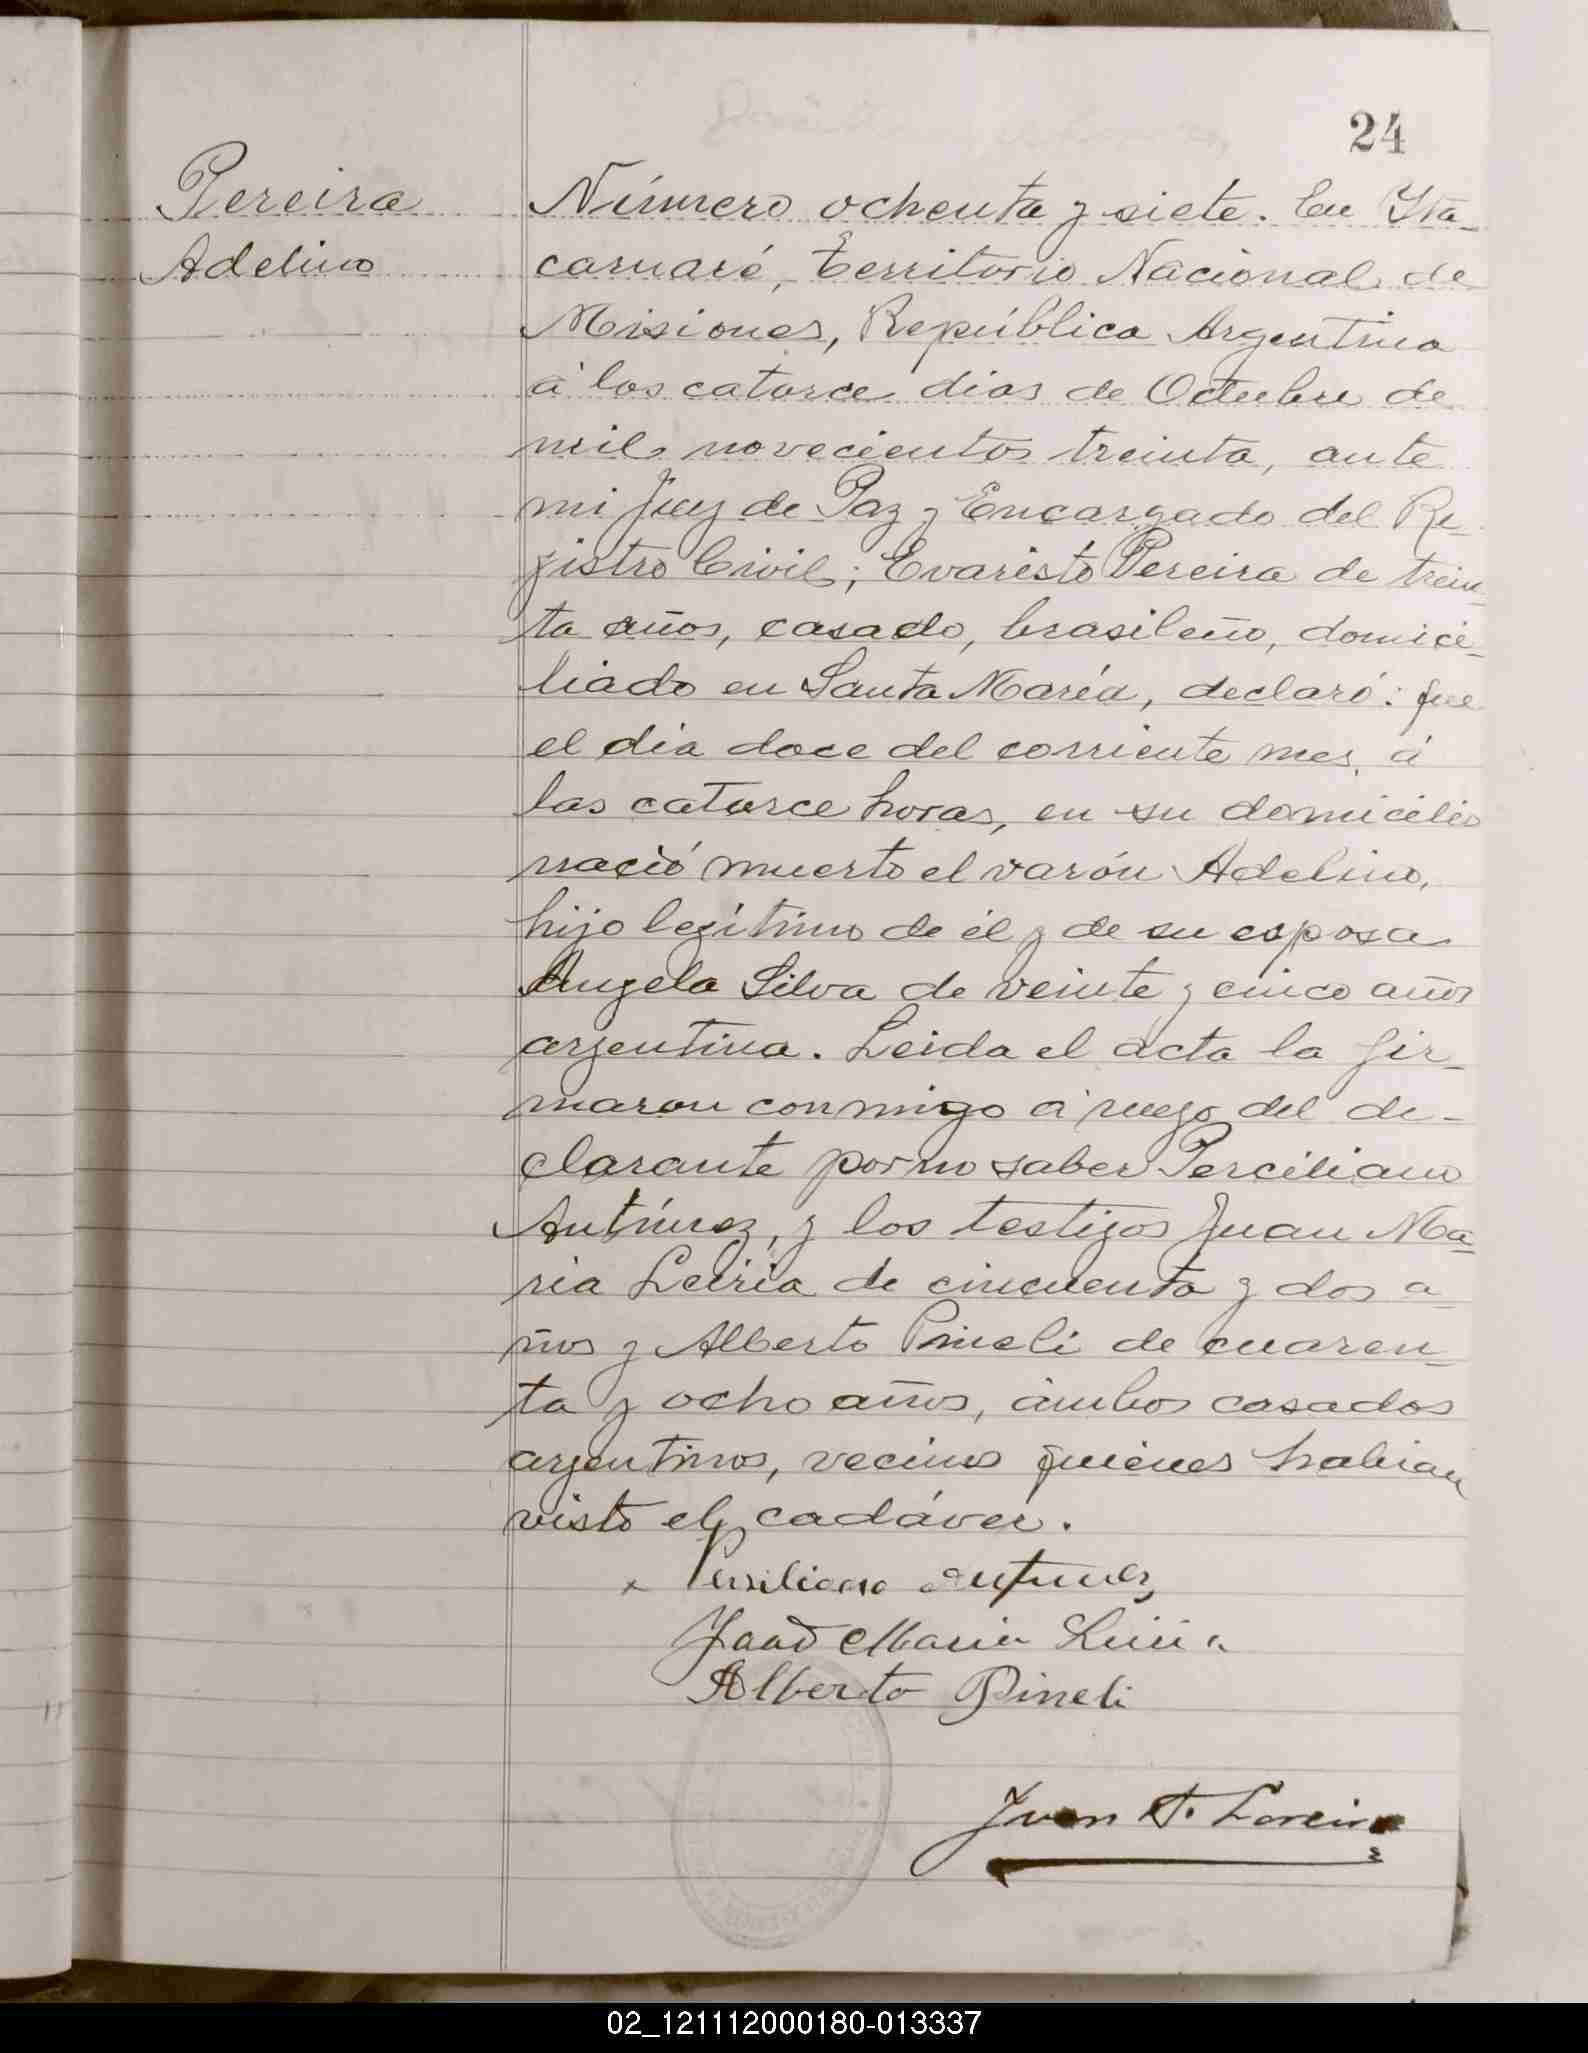 24
Pereira
Adelino
Número ochenta y siete. En Ita-
caruaré, Territorio Nacional de
Misiones, República Argentina
á los catorce dias de Octubre de
mil novecientos treinta, ante
mi Juez de Paz y Encargado del Re-
gistro Civil; Evaristo Pereira de trein-
ta años, casado, brasileño, domici-
liado en Santa María, declaró: que
el dia doce del corriente mes, á
las catorce horas, en su domicilio
nació muerto el varón Adelino,
hijo legítimo de él y de su esposa
Angela Silva de veinte y cinco años
argentina. Leida el acta la fir-
maron conmigo á ruego del de-
clarante por no saber Perciliano
Antúnez, y los testigos Juan Ma-
ria Leiria de cincuenta y dos a-
ños y Alberto Pineli de cuaren-
ta y ocho años, ámbos casados
argentinos, vecinos quienes habian
visto el cadáver.
x Persiliano Antunes
Juan Maria Leiria
Alberto Pineli
Juan F. Loreiro
02_121112000180-013337